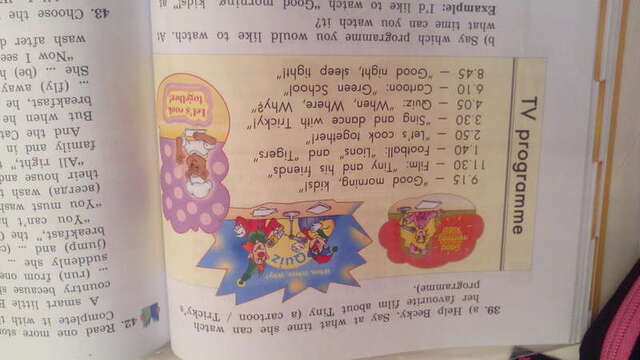 39. a) Help Becky. Say at what time she can watch
her favourite film about Tiny (a cartoon / Tricky's
programme).
TV programme
9.15 — "Good morning, kids!"
11.30 — Film: "Tiny and his friends"
1.40 — Football: "Lions" and "Tigers"
2.50 — "Let's cook together!"
3.30 — "Sing and dance with Tricky!"
4.05 — Quiz: "When, Where, Why?"
6.10 — Cartoon: "Green School"
8.45 — "Good, night, sleep tight!"
QUIZ
Let's cook
together!
b) Say which programme you would like to watch. At
what time can you watch it?
Example: I'd like to watch "Good morning, kids!" at
42. Read one more story
Complete it with
A smart little
country because sh
... (run) from one
suddenly she ...
(jump) and ... (
breakfast," the C
"You can't ha
"You must wash
(всегда) wash t
their house and
"All right,"
family and in
And the Cat
But when he
breakfast, he
... (fly) away
She ... (be) h
"Now I see
wash after d
43. Choose the